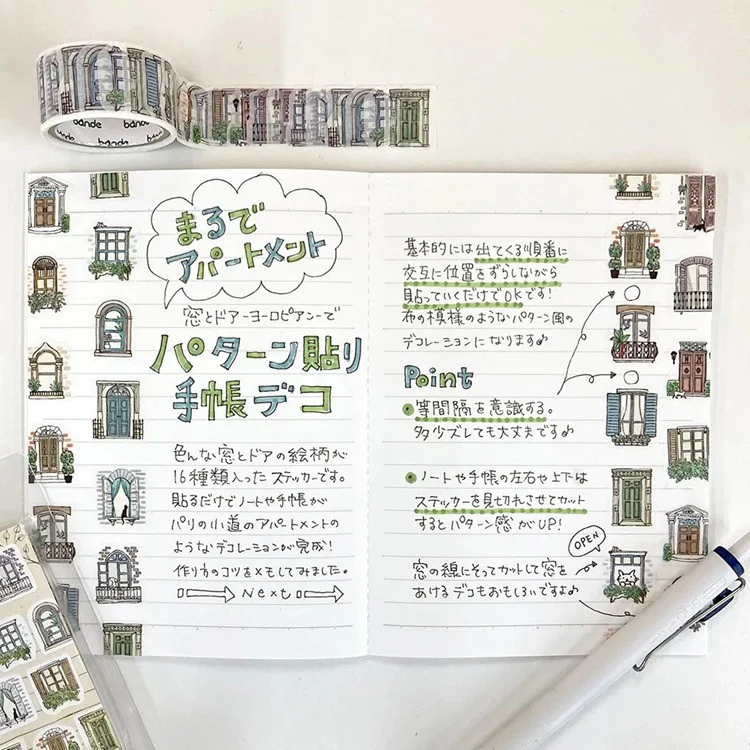 bande bande
bande
まるで
アパートメント
窓とドアーヨーロピアンーで
パターン貼り
手帳デコ
色んな窓とドアの絵柄が
16種類入ったステッカーです。
貼るだけでノートや手帳が
パリの小道のアパートメントの
ようなデコレーションが完成!
作り方のコツをメモしてみました。
Next
基本的には出てくる順番に
交互に位置をずらしながら
貼っていくだけでOKです!
布の模様のようなパターン風の
デコレーションになります♪
Point
等間隔を意識する。
多少ズレても大丈夫です♪
ノートや手帳の左右や上下は
ステッカーを見切れさせてカット
するとパターン感がUP!
OPEN
窓の線にそってカットして窓を
あけるデコもおもしろいですよ♪